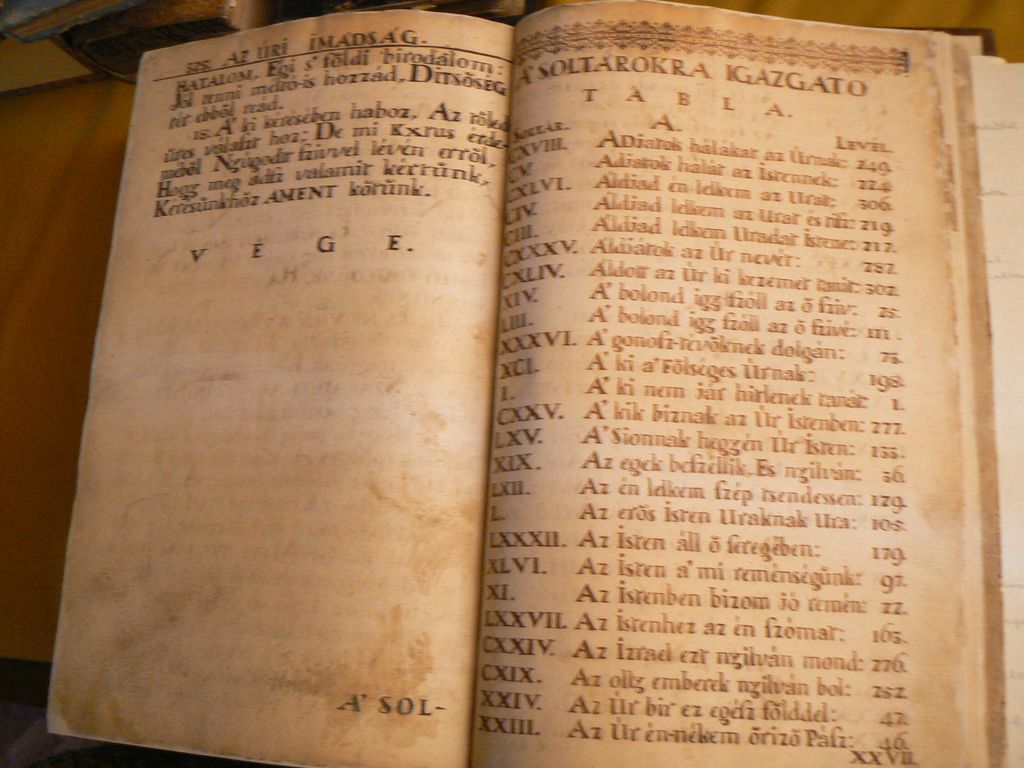 AZ ÚRI IMADSÁG.
HATALOM, Egi s' földi birodalom:
Jól tenni méltó-is hozzád, DITSŐSEG
tér ebből reád.
18. A' ki kérésében haboz, Az
üres választ hoz: De mi
Nyúgodt szivvel lévén erről,
Hogy meg adtz valamit kérrünk,
Kérésünkhöz AMENT kötünk.
V E G E.
A' SOL-
A' SOLTÁROKRA IGAZGATO
T A B L A.
A.
SOLTÁR. LEVÉL.
CXVIII. ADjatok hálákat az Úrnak: 249.
CV. Adjatok hálát az Istennek: 224.
CXLVI. Áldjad én lelkem az Urat: 306.
CIV. Áldjad lelkem az Urat és 219.
CIII. Áldjad lelkem Uradat Istene: 217.
CXXXV. Áldjátok az Úr nevét: 287.
CXLIV. Áldott az Úr ki kezemet tanit: 302.
XIV. A' bolond igy szóll az ő sziv: 25.
LIII. A' bolond igy szóll az ő szivé: 111.
XXXVI. A' gonosz-tévőknek dolgán: 73.
XCI. A' ki a' Fölséges Úrnak: 198.
I. A' ki nem jár hitlenek tanát: 1.
CXXV. A' kik biznak az Úr Istenben: 277.
LXV. A' Sionnak hegyén Úr Isten: 133.
XIX. Az egek beszéllik, Es nyilván: 36.
LXII. Az én lelkem szép tsendessen: 129.
L. Az erős Isten Uraknak Ura: 105.
LXXXII. Az Isten áll ő seregében: 179.
XLVI. Az Isten a' mi reménségünk: 97.
XI. Az Istenben bizom jó remén: 22.
LXXVII. Az Istenhez az én szómat: 163.
CXXIV. Az Izrael ezt nyilván mond: 276.
CXIX. Az olly emberek nyilván bol: 252.
XXIV. Az Úr bir ez egész földdel: 47.
XXIII. Az Úr én-nékem őriző Pász: 46.
XXVII.